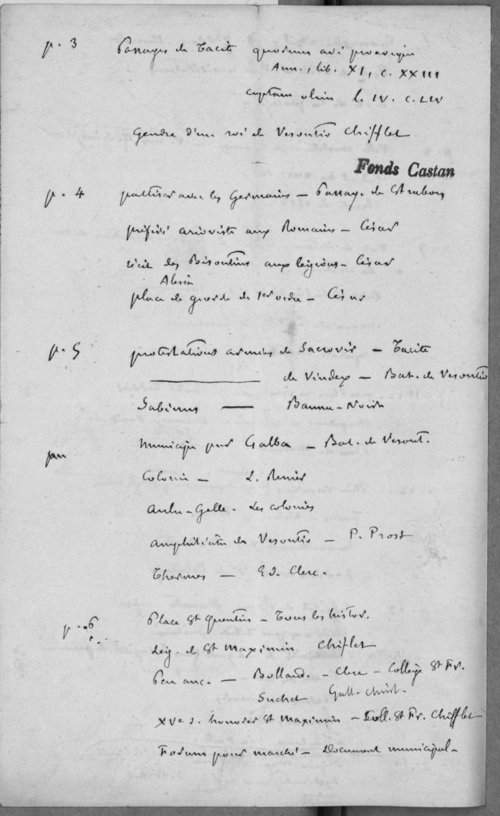 p. 3 Passages de Tacite quorum avi proavique
Ann., lib. XI, c. XXIII
captam olim l. IV. c. LIV
Gendre d'un roi de Vesontio Chifflet
Fonds Castan
p. 4 pactiser avec les Germains — Passage de Strabon
préféré arioviste aux Romains — César
récit des Bisontins aux légions — César
Alesia
place de guerre de 1er ordre — César
p. 5 protestations armées de Sacrovir — Tacite
de Vindex — Bat. de Vesontio
Sabinus —
municipe par Galba — Bat. de Vesont.
Colonie — L. Renier
Aulu-Gelle. Les colonies
amphithéâtre de Vesontio — P. Prost
Thermes — Ed. Clerc.
p. 6 Place St Quentin — Tous les histor.
Lég. de St Maximin Chifflet
— Bolland. — Clerc — Collège St Fr.
Suchet Gall. Christ.
XVe s. honorer St Maximin — Coll. St Fr. Chifflet
Forum pour marché — Document municipal —